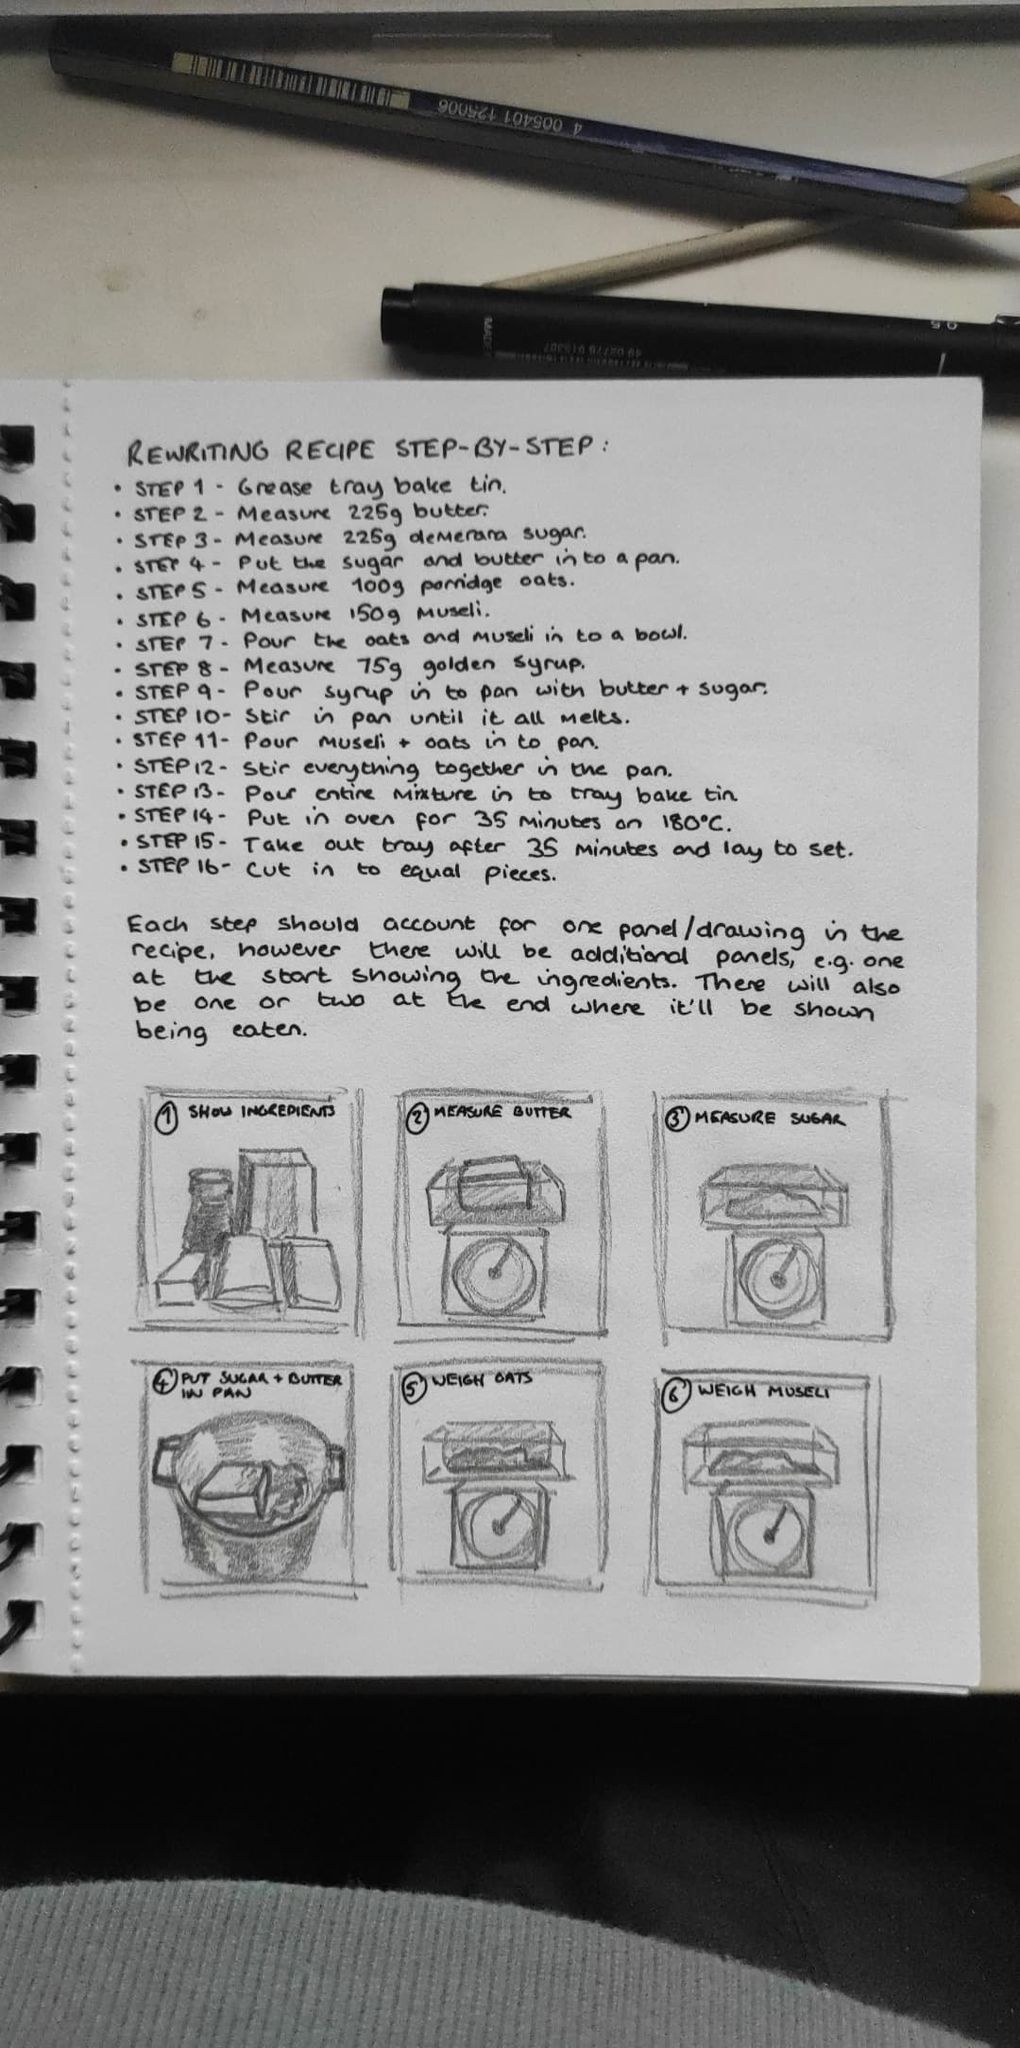 4 005401 125006
0.5
MADE
REWRITING RECIPE STEP-BY-STEP:
• STEP 1 - Grease tray bake tin.
• STEP 2 - Measure 225g butter.
• STEP 3 - Measure 225g demerara sugar.
• STEP 4 - Put the sugar and butter in to a pan.
• STEP 5 - Measure 100g porridge oats.
• STEP 6 - Measure 150g Museli.
• STEP 7 - Pour the oats and Museli in to a bowl.
• STEP 8 - Measure 75g golden syrup.
• STEP 9 - Pour syrup in to pan with butter + sugar.
• STEP 10 - Stir in pan until it all melts.
• STEP 11 - Pour museli + oats in to pan.
• STEP 12 - Stir everything together in the pan.
• STEP 13 - Pour entire mixture in to tray bake tin
• STEP 14 - Put in oven for 35 minutes on 180°C.
• STEP 15 - Take out tray after 35 minutes and lay to set.
• STEP 16 - Cut in to equal pieces.
Each step should account for one panel/drawing in the
recipe, however there will be additional panels, e.g. one
at the start showing the ingredients. There will also
be one or two at the end where it'll be shown
being eaten.
1 SHOW INGREDIENTS
2 MEASURE BUTTER
3 MEASURE SUGAR
4 PUT SUGAR + BUTTER
IN PAN
5 WEIGH OATS
6 WEIGH MUSELI